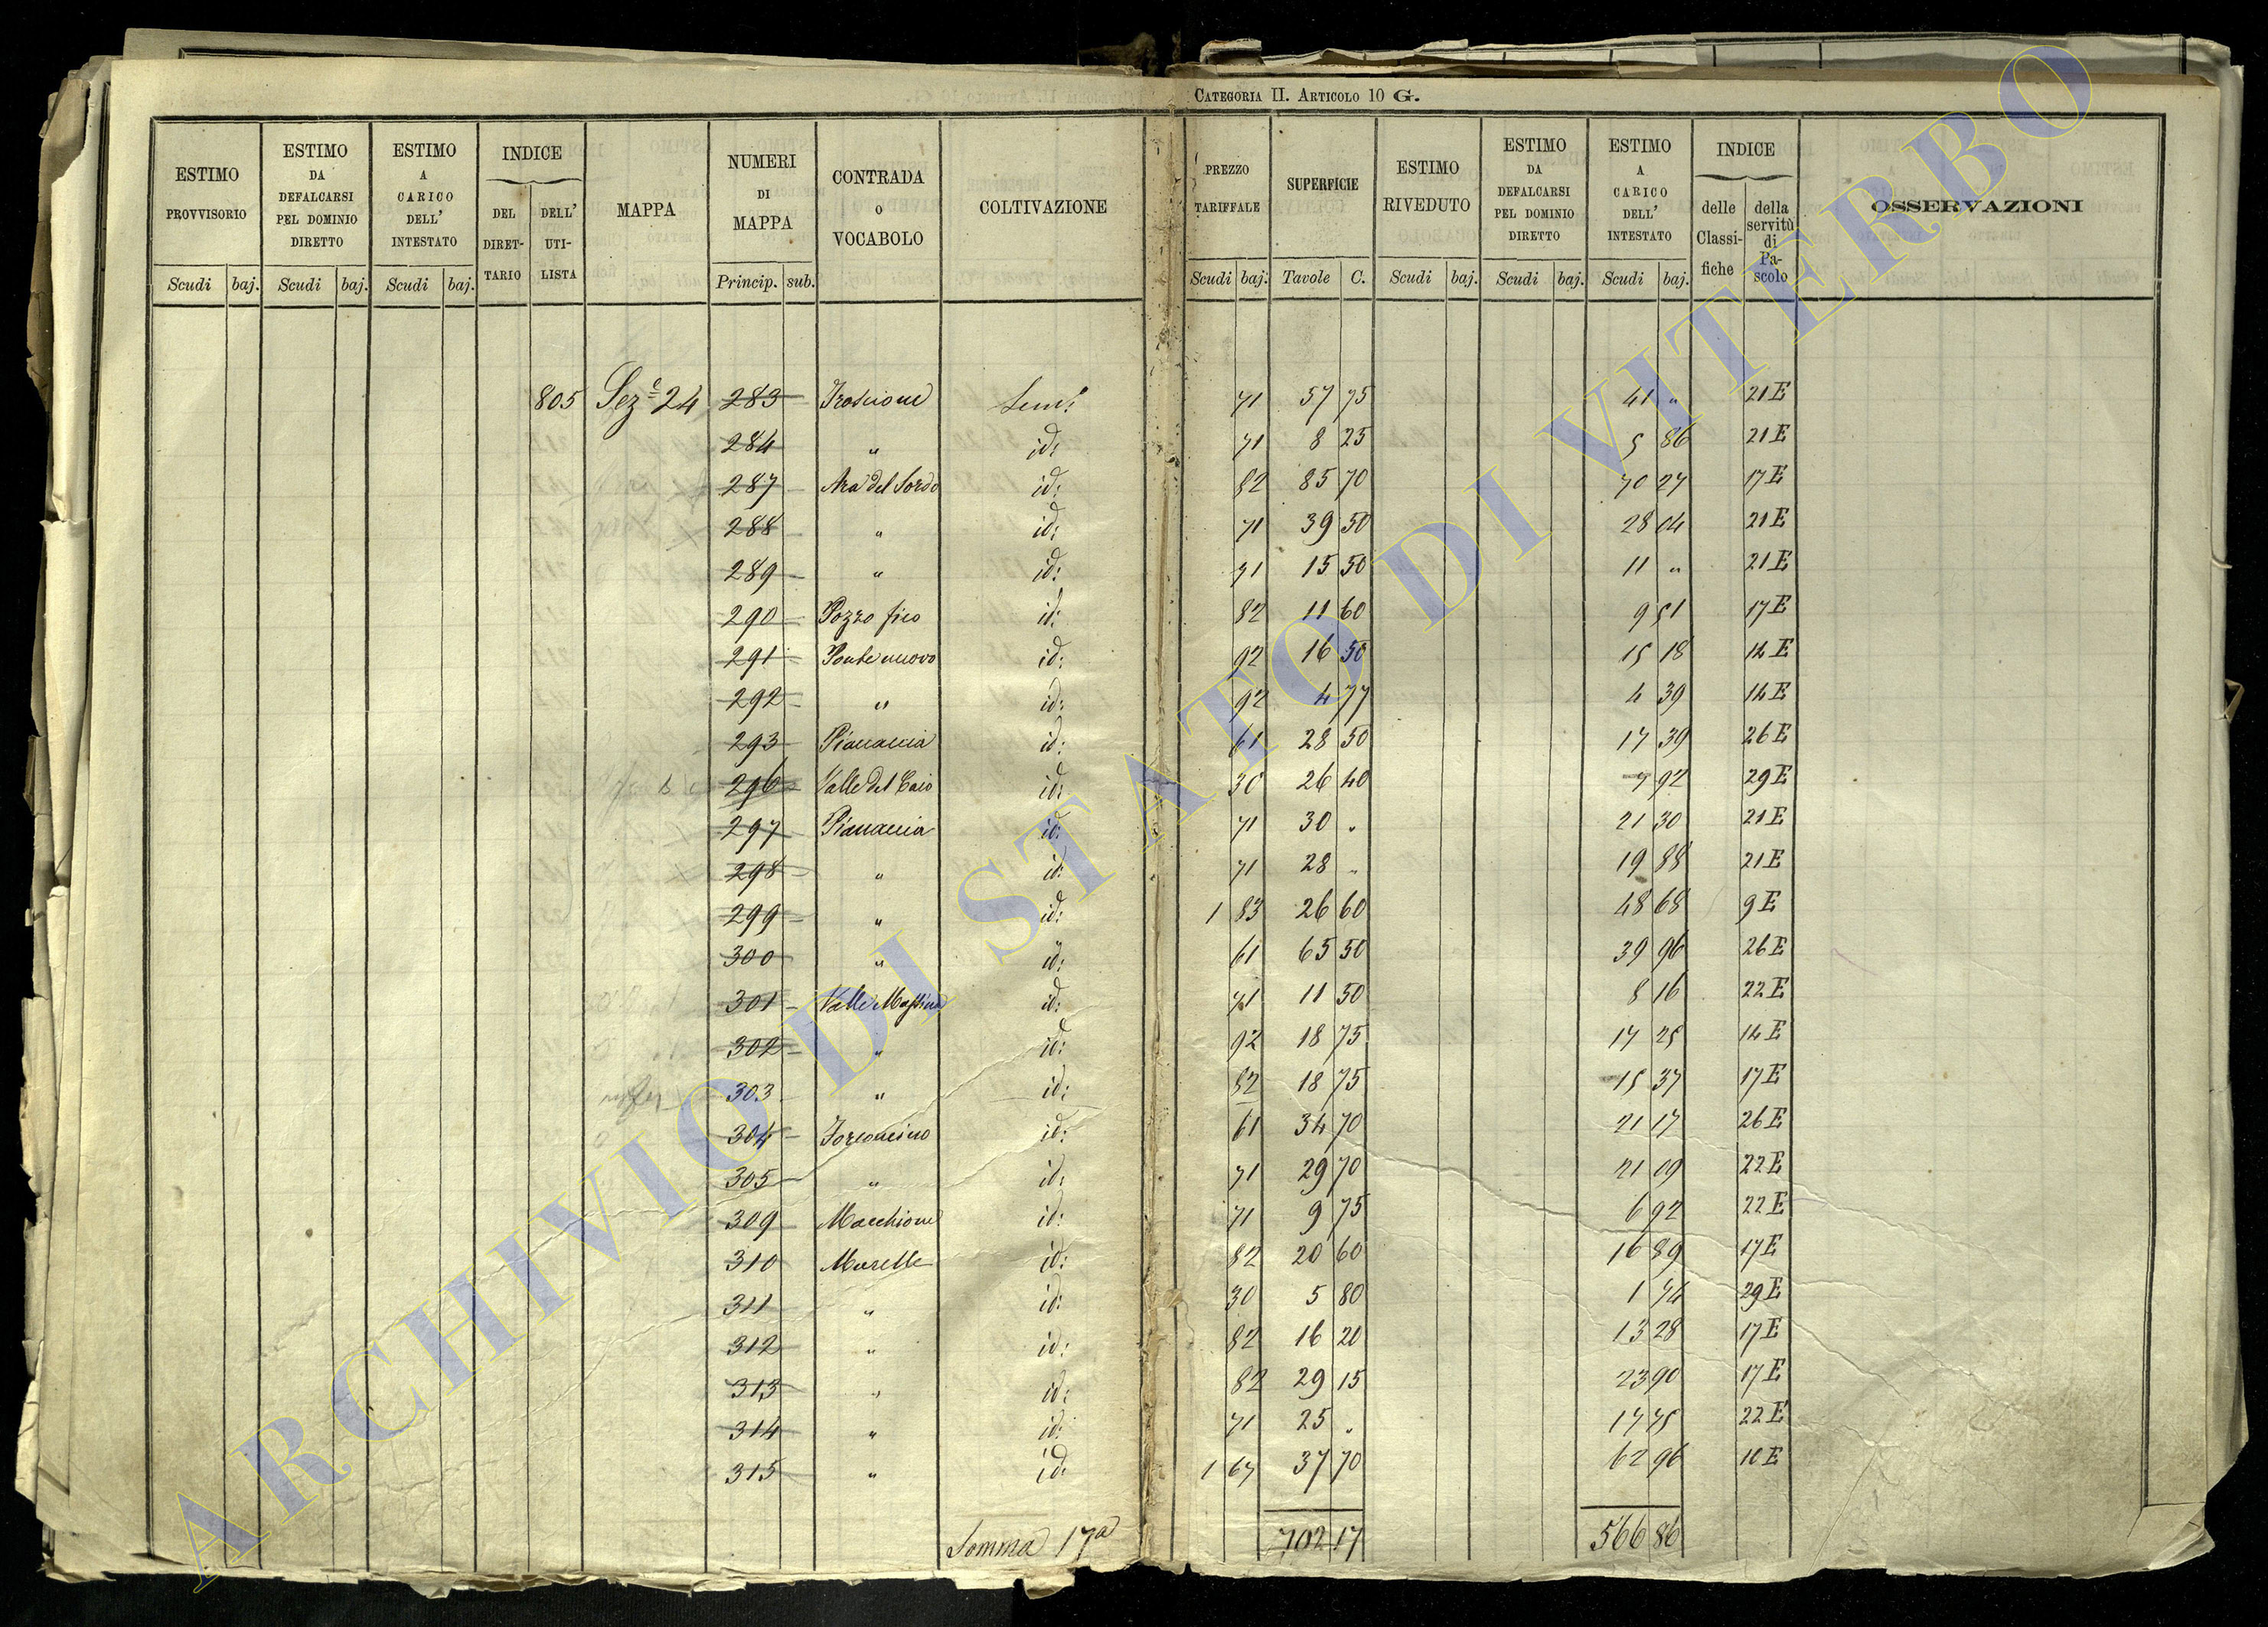 CATEGORIA II. ARTICOLO 10 G.
ESTIMO PROVVISORIO | ESTIMO DA DEFALCARSI PEL DOMINIO DIRETTO | ESTIMO A CARICO DELL' INTESTATO | INDICE DEL DIRET-TARIO | DELL' UTI-LISTA | MAPPA | NUMERI DI MAPPA | CONTRADA O VOCABOLO | COLTIVAZIONE | PREZZO TARIFFALE | SUPERFICIE | ESTIMO RIVEDUTO | ESTIMO DA DEFALCARSI PEL DOMINIO DIRETTO | ESTIMO A CARICO DELL' INTESTATO | INDICE delle Classi-fiche | della servitù di Pa-scolo | OSSERVAZIONI
Scudi baj. Scudi baj. Scudi baj. Princip. sub. Scudi baj. Tavole C. Scudi baj. Scudi baj. Scudi baj.
805 Seze 24 283 Semi 71 57 75 41 " 21 E
284 " id: 71 8 25 5 86 21 E
287 Ara del Sordo id: 82 85 70 70 27 17 E
288 " id: 71 39 50 28 04 21 E
289 " id: 71 15 50 11 " 21 E
290 Pozzo fico id: 82 11 60 9 51 17 E
291 Ponte nuovo id: 92 16 50 15 18 14 E
292 " id: 92 4 77 4 39 14 E
293 Pianaccia id: 61 28 50 17 39 26 E
296 Valle del Caio id: 30 26 40 7 92 29 E
297 Pianaccia id: 71 30 " 21 30 21 E
298 " id: 71 28 " 19 88 21 E
299 " id: 1 83 26 60 48 68 9 E
300 " id: 61 65 50 39 96 26 E
301 Valle id: 71 11 50 8 16 22 E
302 " id: 92 18 75 17 25 14 E
303 " id: 82 18 75 15 37 17 E
304 Forconcino id: 61 34 70 21 17 26 E
305 " id: 71 29 70 21 09 22 E
309 Macchione id: 71 9 75 6 92 22 E
310 Morelle id: 82 20 60 16 89 17 E
311 " id: 30 5 80 1 74 29 E
312 " id: 82 16 20 13 28 17 E
313 " id: 82 29 15 23 90 17 E
314 " id: 71 25 " 17 75 22 E
315 " id: 1 67 37 70 62 96 10 E
Somma 17a 702 17 566 86
ARCHIVIO DI STATO DI VITERBO